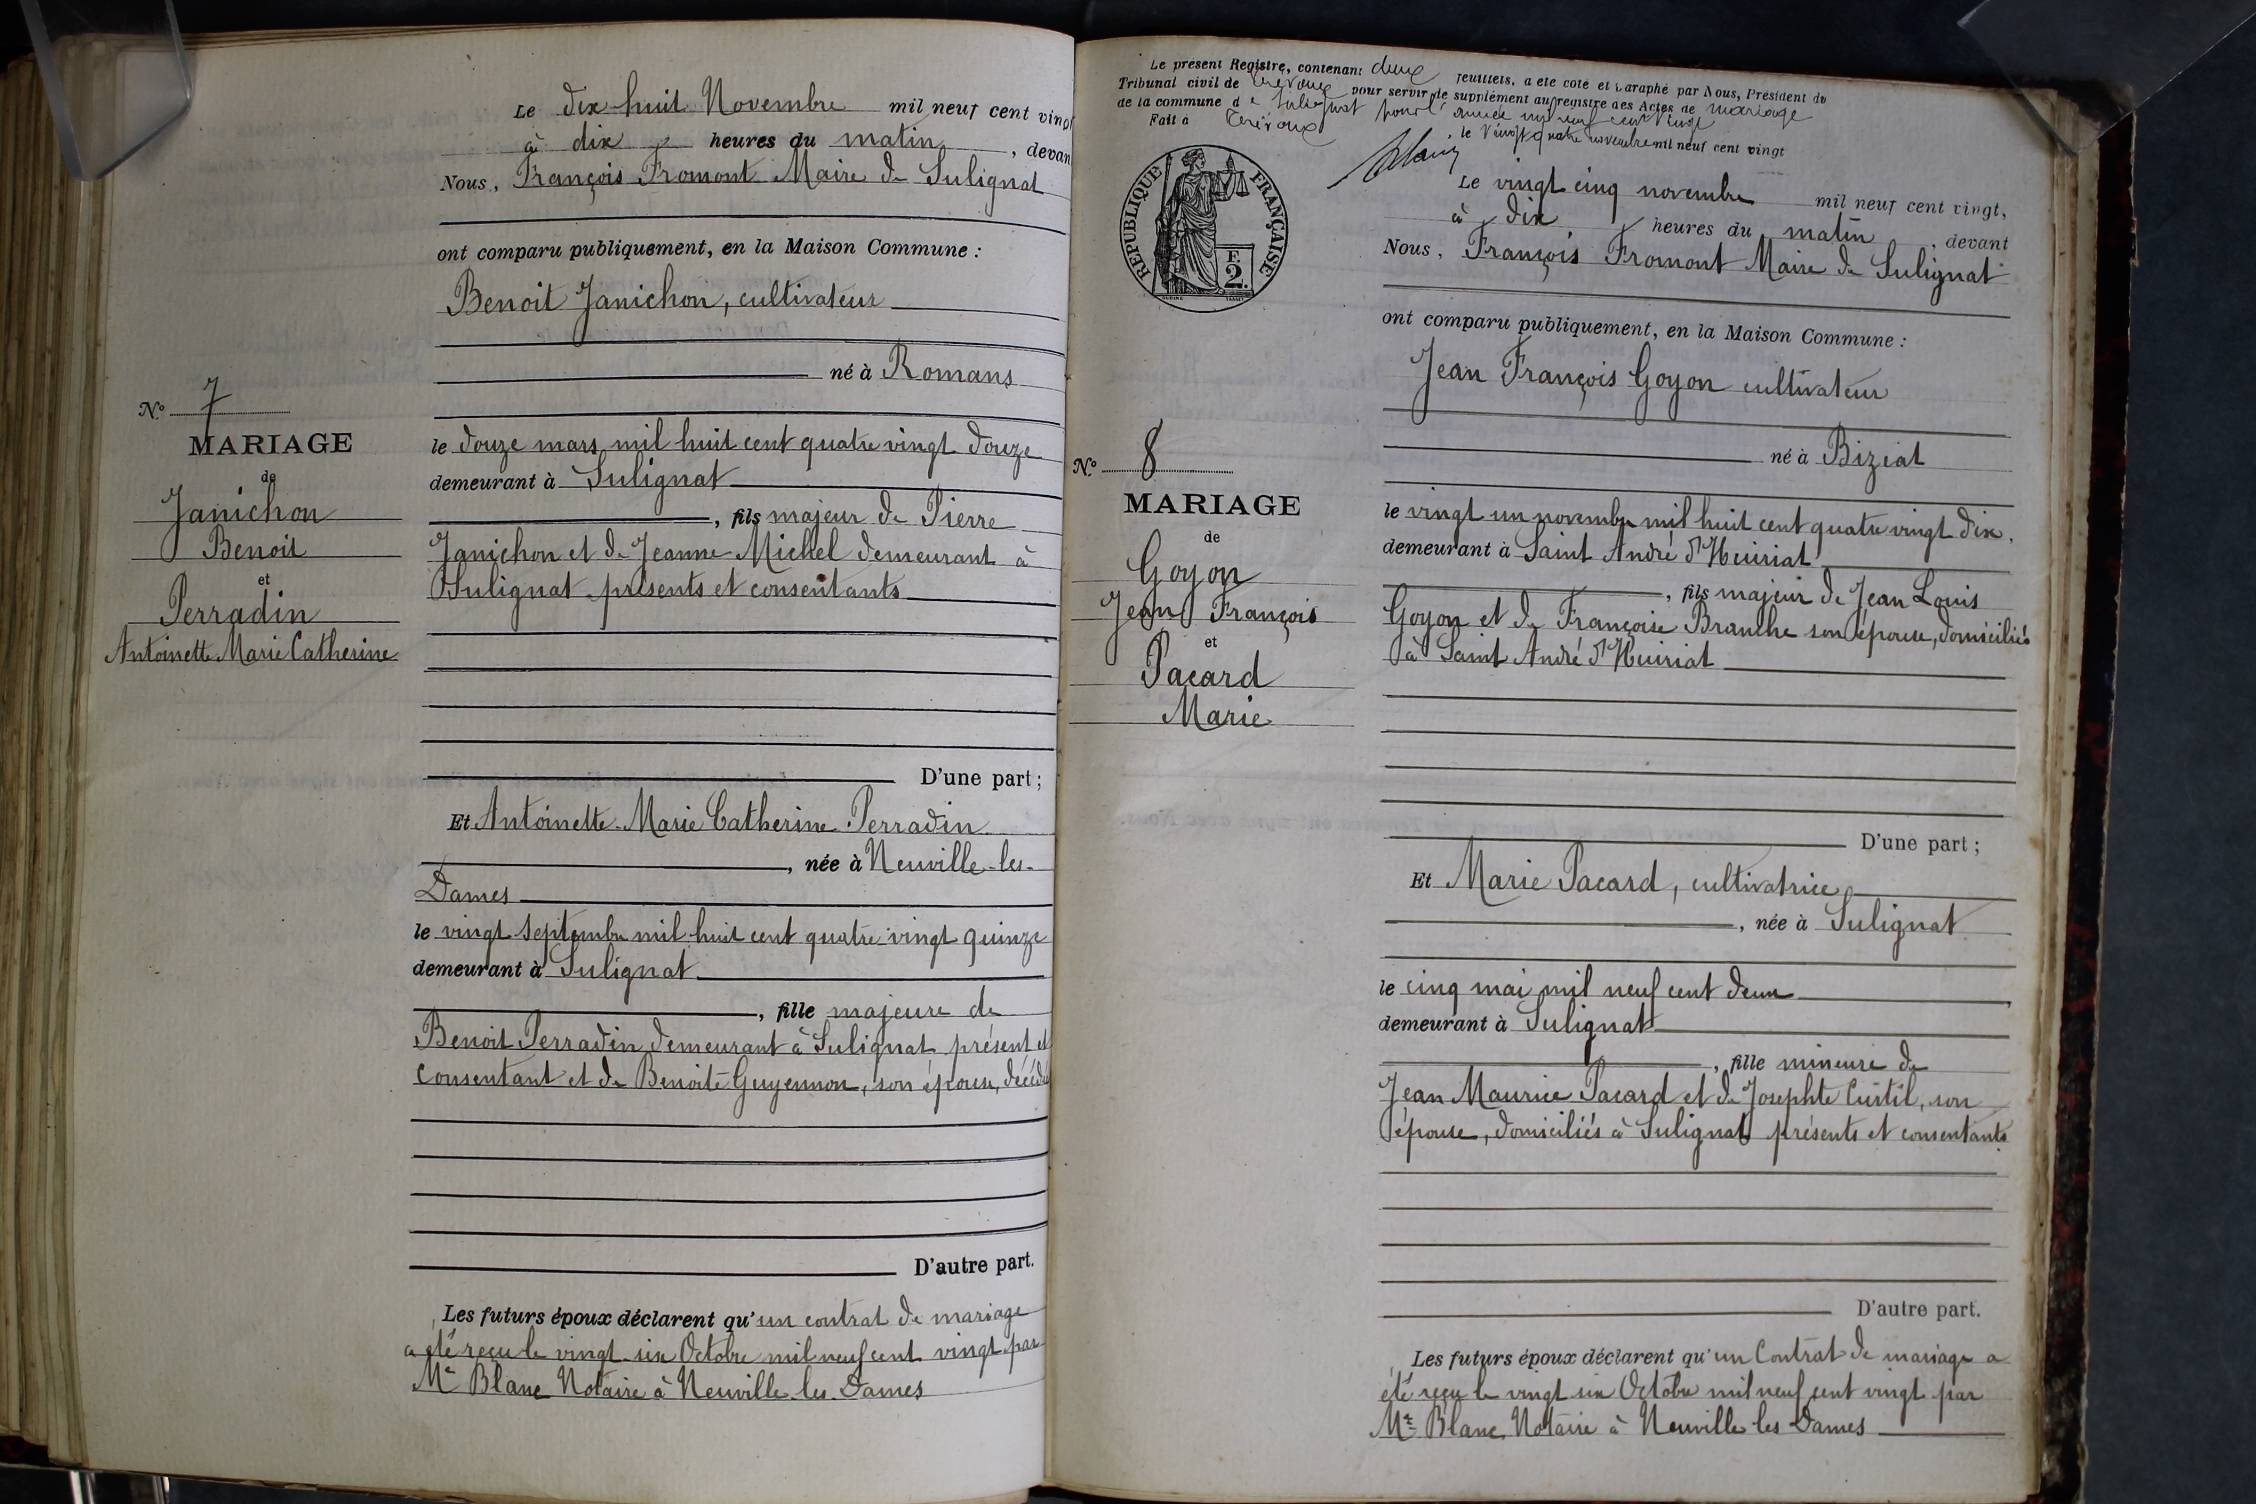 Le dix huit Novembre mil neuf cent vingt
à dix heures du matin, devan
Nous, François Fromont Maire de Sulignat
ont comparu publiquement, en la Maison Commune :
Benoit Janichon, cultivateur
né à Romans
le douze mars mil huit cent quatre vingt douze
demeurant à Sulignat
, fils majeur de Pierre
Janichon et de Jeanne Michel demeurant à
Sulignat présents et consentants
D'une part ;
Et Antoinette Marie Catherine Perradin
, née à Neuville-les-
Dames
le vingt septembre mil huit cent quatre vingt quinze
demeurant à Sulignat
, fille majeure de
Benoit Perradin demeurant à Sulignat présent et
consentant et de Benoite Guyennon, son épouse, décédé
D'autre part.
Les futurs époux déclarent qu'un contrat de mariage
a été reçu le vingt six Octobre mil neuf cent vingt par
Me Blanc Notaire à Neuville les Dames
No 7
MARIAGE
de
Janichon
Benoit
et
Perradin
Antoinette Marie Catherine
Le présent Registre, contenant deux feuillets, a été coté et paraphé par Nous, Président du
Tribunal civil de Trévoux pour servir de supplément au registre des Actes de mariage
de la commune de pour l'année mil neuf cent vingt
Fait à Trévoux, le vingt quatre novembre mil neuf cent vingt
REPUBLIQUE FRANÇAISE
F.
2.
Le vingt cinq novembre mil neuf cent vingt,
à dix heures du matin, devant
Nous, François Fromont Maire de Sulignat
ont comparu publiquement, en la Maison Commune :
Jean François Goyon cultivateur
né à Biziat
le vingt un novembre mil huit cent quatre vingt dix.
demeurant à Saint André d'Huiriat
, fils majeur de Jean Louis
Goyon et de Françoise Branche son épouse, domiciliés
à Saint André d'Huiriat
D'une part ;
Et Marie Pacard, cultivatrice
, née à Sulignat
le cinq mai mil neuf cent deux
demeurant à Sulignat
, fille mineure de
Jean Maurice Pacard et de Josephte Curtil, son
épouse, domiciliés à Sulignat présents et consentants
D'autre part.
Les futurs époux déclarent qu'un Contrat de mariage a
été reçu le vingt six Octobre mil neuf cent vingt par
Me Blanc Notaire à Neuville les Dames
No 8
MARIAGE
de
Goyon
Jean François
et
Pacard
Marie